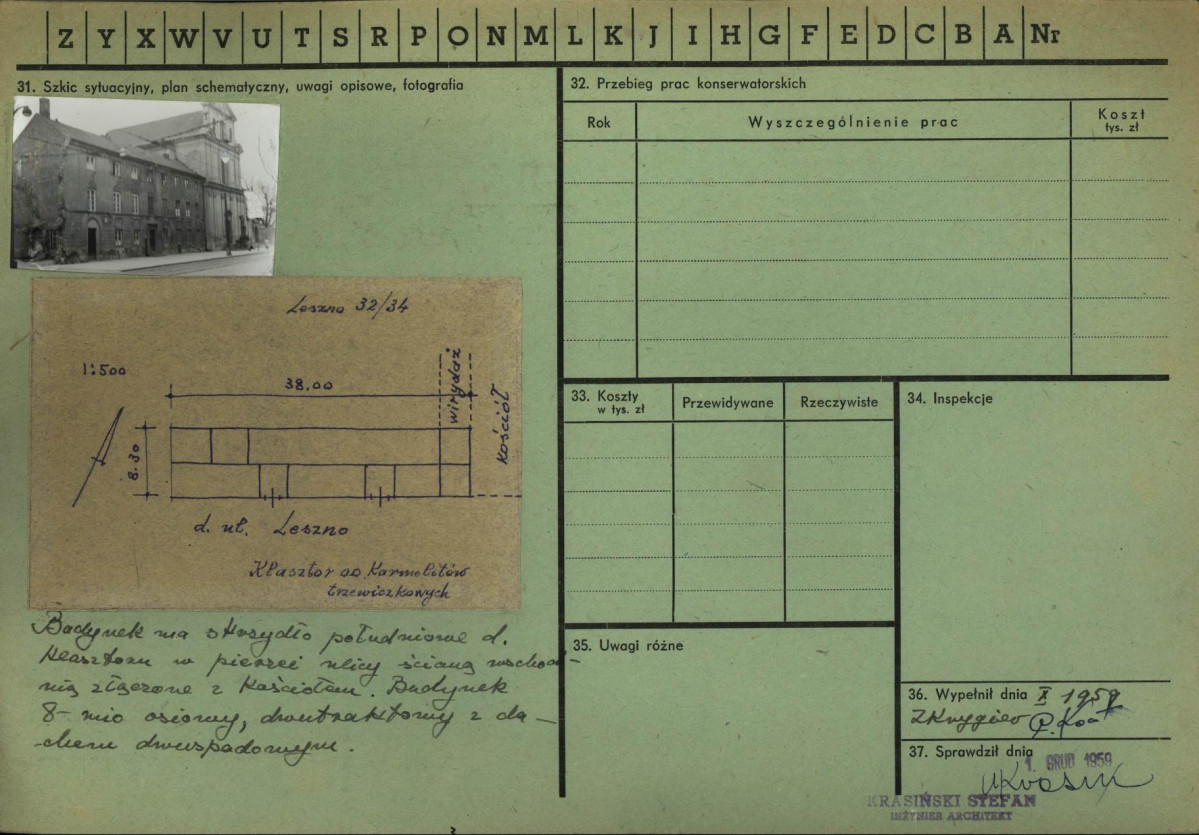 Z Y X W V U T S R P O N M L K J I H G F E D C B A Nr
31. Szkic sytuacyjny, plan schematyczny, uwagi opisowe, fotografia
Leszno 32/34
1:500
38.00
wirydaż
kościół
8.30
d. ul. Leszno
Klasztor oo Karmelitów
trzewiczkowych
Budynek ma skrzydło południowe d.
Klasztoru w pierzei ulicy ścianą wschod-
nią złączone z Kościołem. Budynek
8-mio osiowy, dwutraktowy z da-
-chem dwuspadowym.
32. Przebieg prac konserwatorskich
Rok
Wyszczególnienie prac
Koszt
tys. zł
33. Koszty
w tys. zł
Przewidywane
Rzeczywiste
34. Inspekcje
35. Uwagi różne
36. Wypełnił dnia X 1959
37. Sprawdził dnia
1. GRUD 1959
KRASIŃSKI STEFAN
INŻYNIER ARCHITEKT